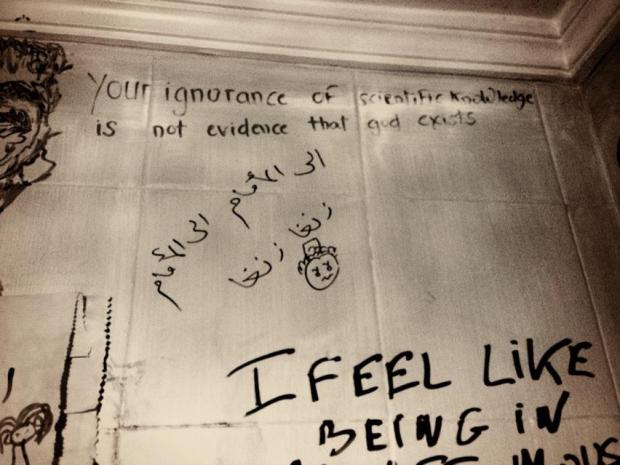 Your ignorance of scientific knowledge
is not evidence that god exists
الى الأمام
الى الأمام
زنقا زنقا
I FEEL LiKE
BEING iN